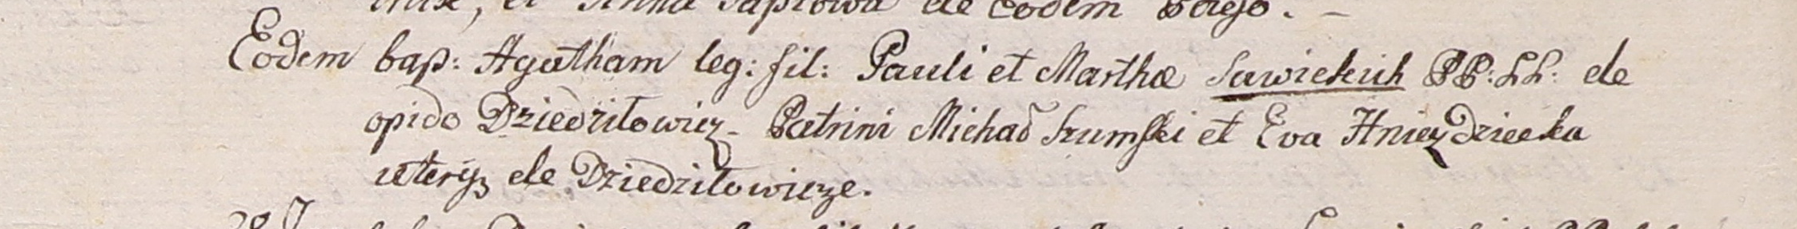 et Anna de Eodem
Eodem bap: Agatham leg: fil: Pauli et Marthæ Sawickich PP: LL: de
opido Dziedziłowicz - Patrini Michał Szumski et Eva Hniezdziecka
uterq3 de Dziedziłowicze.